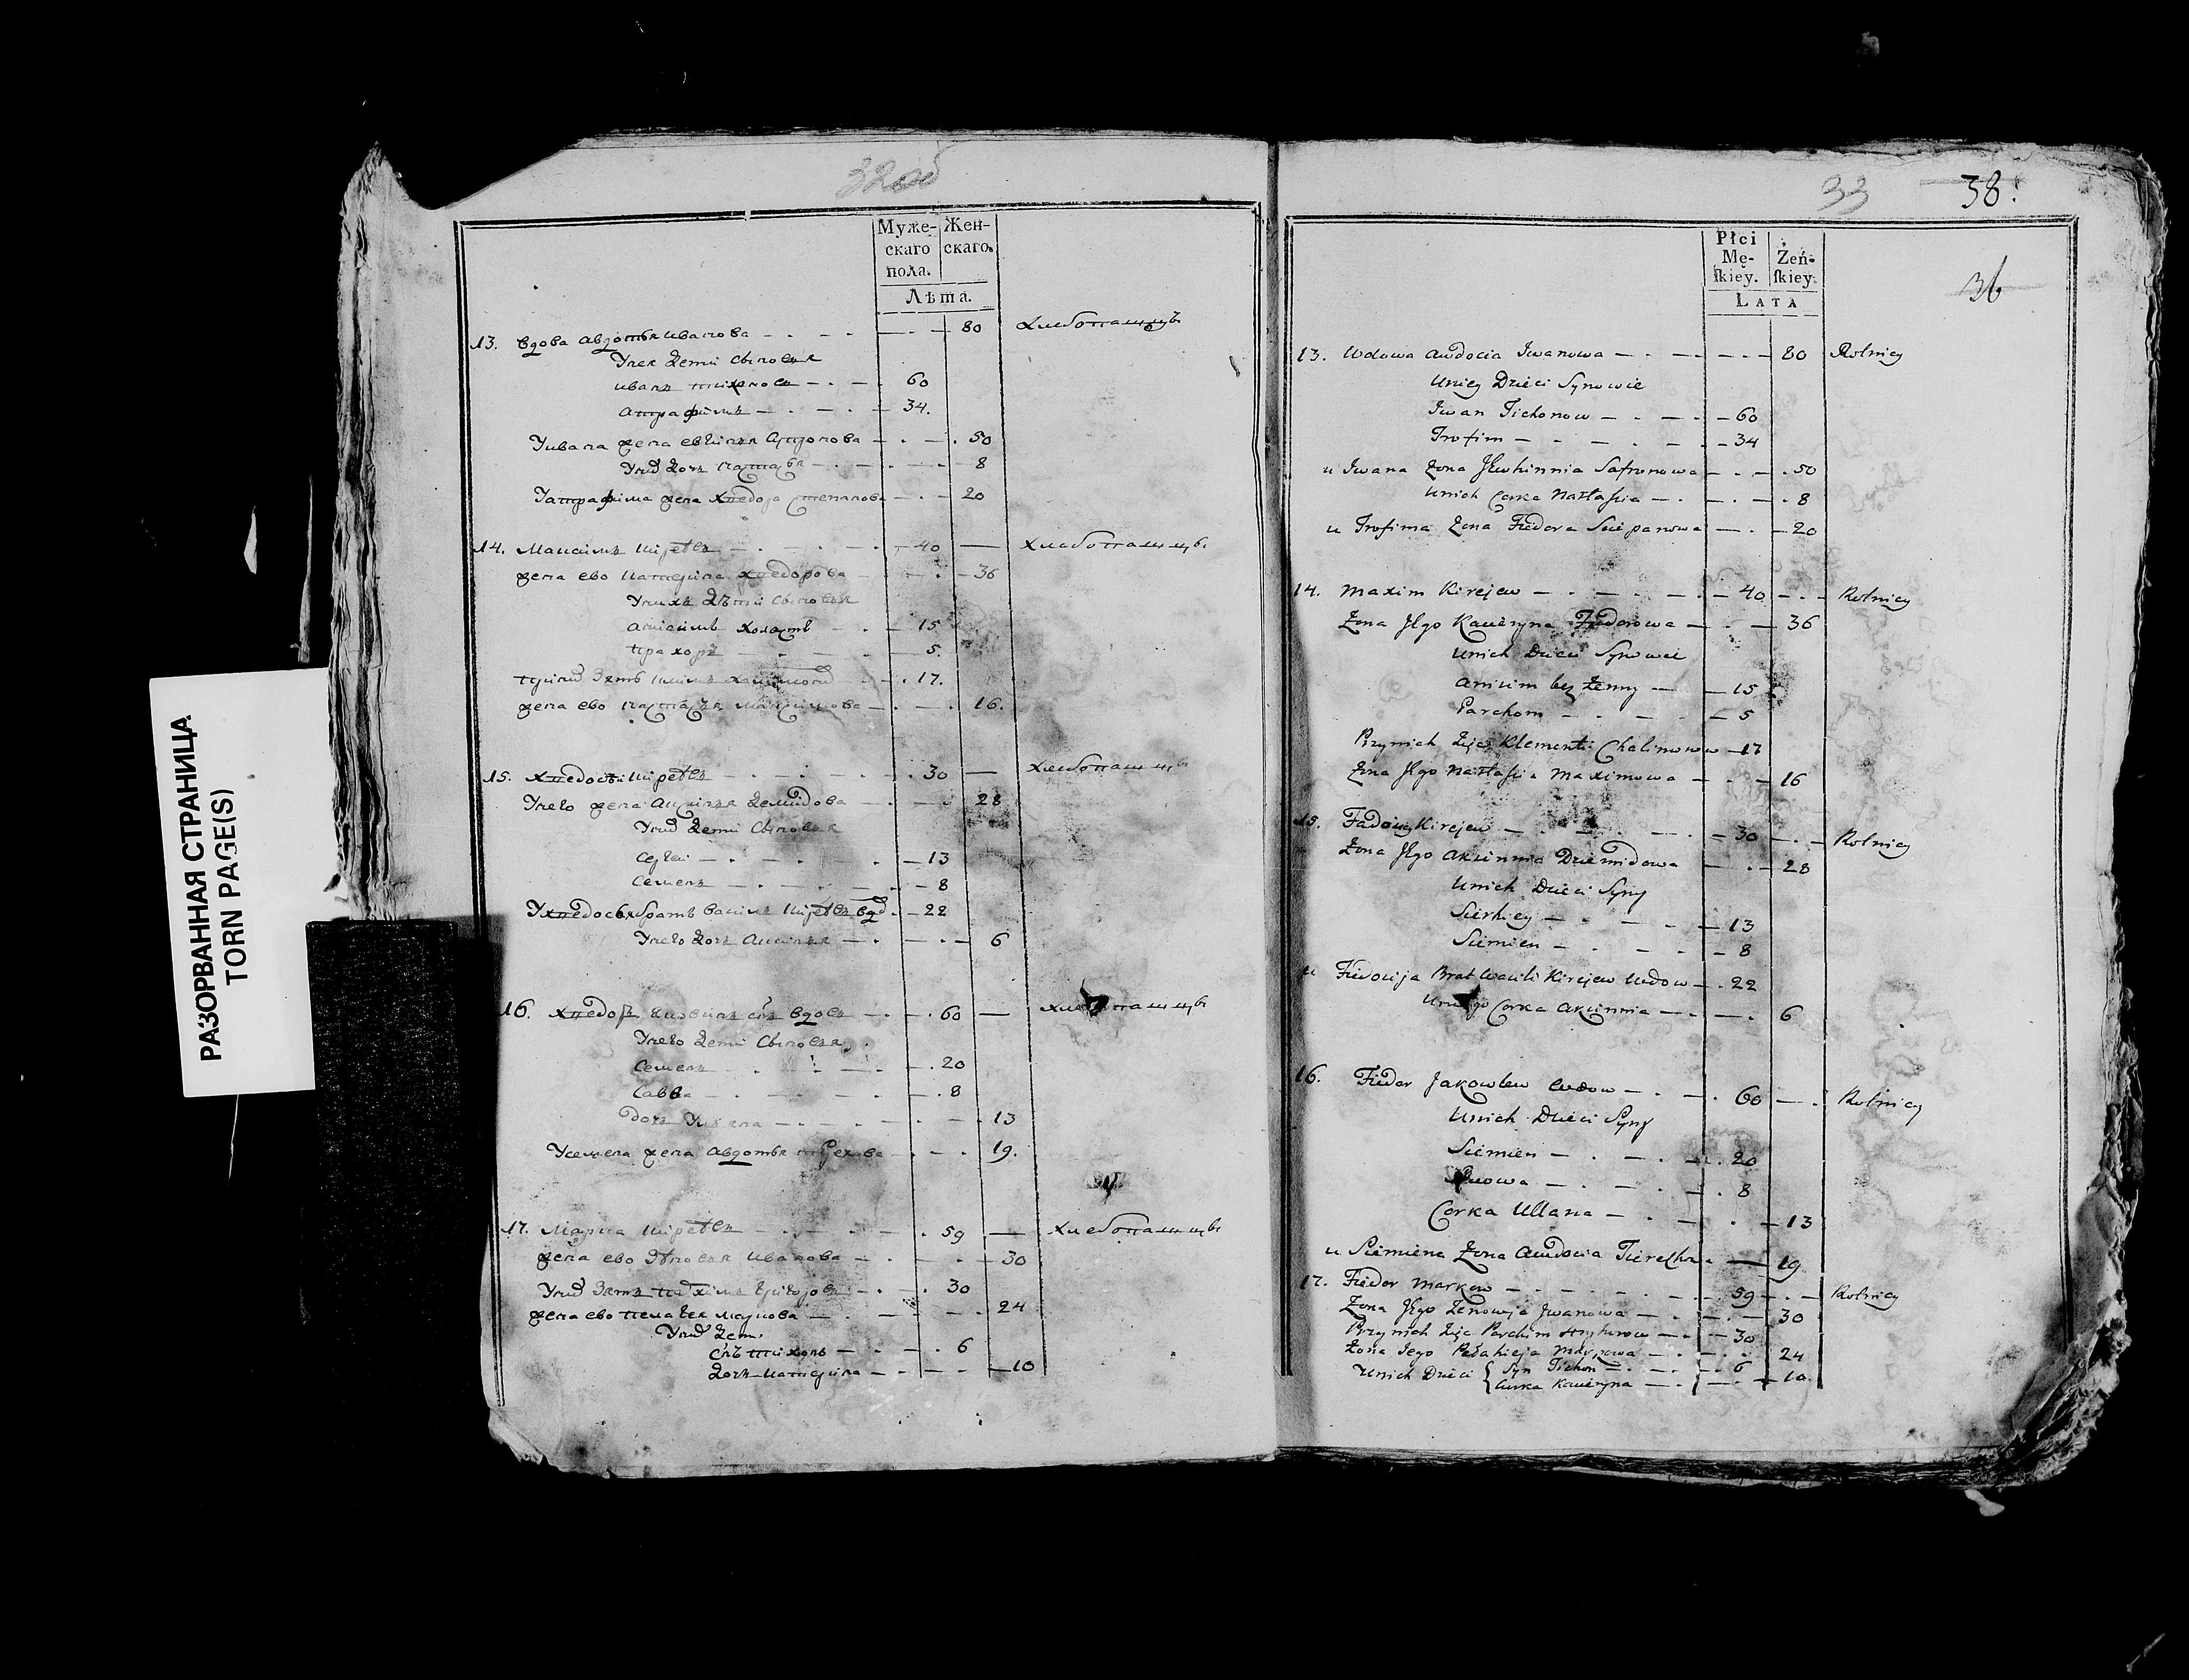 РАЗОРВАННАЯ СТРАНИЦА
TORN PAGE(S)
32 об
Муже-скаго пола. Жен-скаго.
Лѣта.
13. вдова авдотья иванова — 80 хлебопашцы
У нея дети сыновья
иванъ тихоновъ — 60
атрафимъ — 34.
У ивана жена евгиния — 50
У них дочь настасья — 8
У атрафима жена хведора степанова — 20
14. Максимъ киреевъ — 40 — хлебопашцы
жена ево катерина хведорова — 36
У нихъ дѣти сыновья
анисимъ холостъ — 15
прахоръ — 5
при них зять климъ — 17.
жена ево настасья максимова — 16.
15. хведосѣй киреевъ — 30 — хлебопашцы
У него жена аксинья демидова — 28
У них дети сыновья
сергеи — 13
семенъ — 8
У хведосея братъ василъ киреевъ вдов — 22
У него дочь аксинья — 6
16. хведоръ вдовъ — 60 — хлебопашцы
У него дети сыновья
семенъ — 20
савва — 8
дочь ульяна — 13
У семена жена авдотья терехова — 19.
17. Марка киреевъ — 59 — хлебопашцы
жена ево зѣновья иванова — 30
У них зять пархимъ григорьевъ — 30
жена ево пелагея маркова — 24
У них дети
снъ тихонъ — 6
дочь катерина — 10
33 38.
36
Płci Mę-ſkiey. Żeń-ſkiey.
LATA
13. Wdowa Awdocia Iwanowa — 80 Rolnicy
Unicy Dzieci Synowie
Iwan Tichonow — 60
Trofim — 34
u Iwana Żona Jewhinnia Safronowa — 50
Unich Corka Nastasia — 8
u Trofima Żona Fiedora Sciepanowa — 20
14. Maxim Kirejew — 40 — Rolnicy
Żona Jego Kateryna Fiedorowa — 36
Unich Dzieci Synowie
Anisim bez Żenny — 15
Parchom — 5
Przynich Zięć Klementi Chalimonow — 17
Żona Jego Nastasia Maximowa — 16
15. Kirejew — 30 — Rolnicy
Żona Jego Akcinnia Dziemidowa — 28
Unich Dzieci Syny
Sierhiey — 13
Siemien — 8
u Brat Wasili Kirejew Wdow — 22
Uniego Corka Akcinnia — 6
16. Fiedor Jakowlew Wdow — 60 — Rolnicy
Unich Dzieci Syny
Siemien — 20
— 8
Corka Ullana — 13
u Siemiena Żona Awdocia — 19
17. Fiedor Markow — 59 — Rolnicy
Żona Jego Zenowija Iwanowa — 30
Przynich Zięć Parchim Hryhorow — 30
Żona Jego Pełahieja Markowa — 24
Unich Dzieci { Syn Tichon — 6
Curka Kateryna — 10